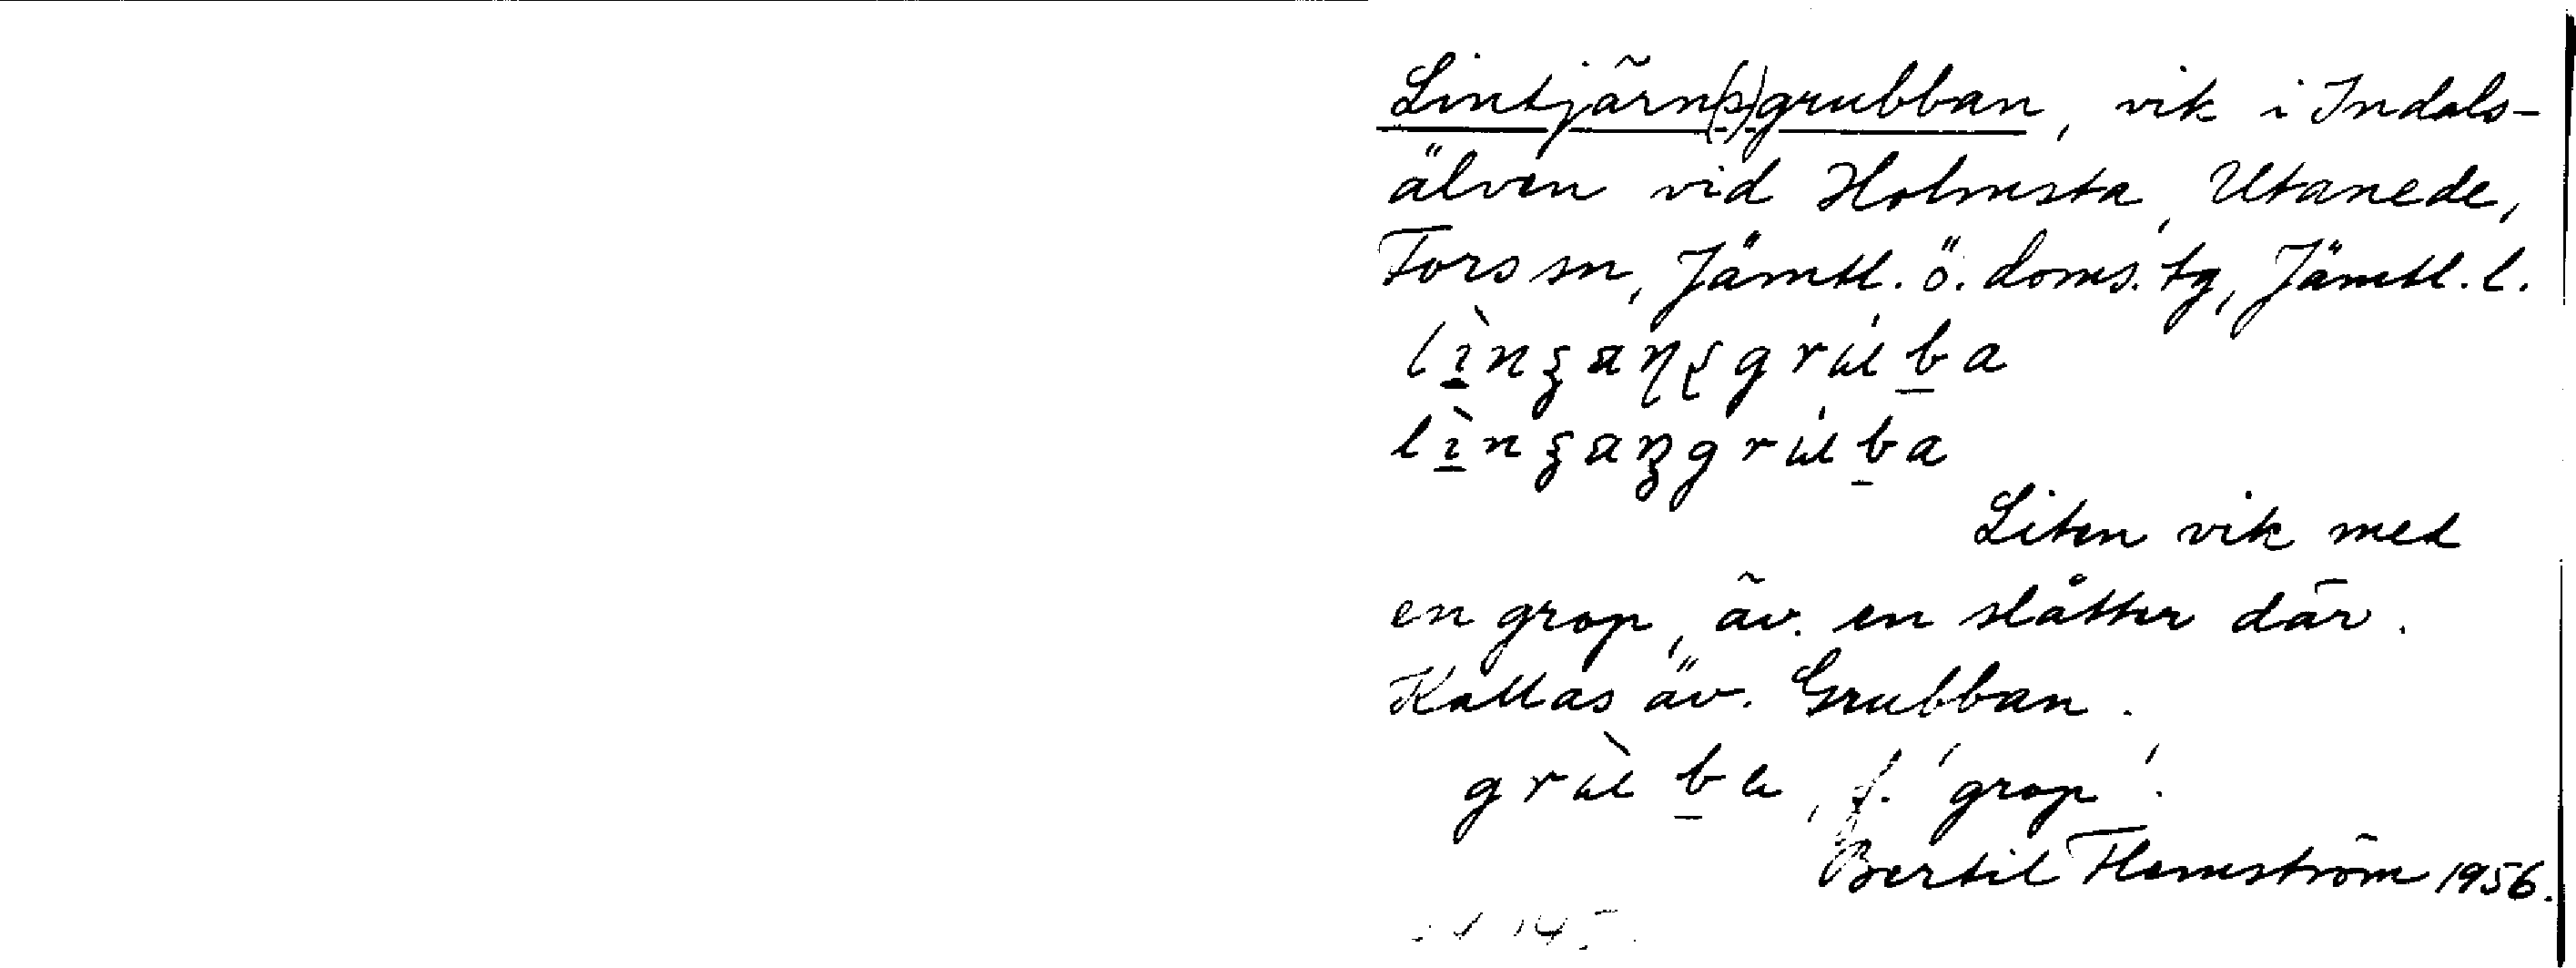 Lintjärn(s)grubban, vik i Indals-
älven vid Holmsta, Utanede,
Fors sn, Jämtl. ö. doms. tg, Jämtl. l.
Liten vik med
en grop, äv. en slåtter där.
Kallas äv. Grubban.
f. 'grop'.
Bertil Flemström 1956.